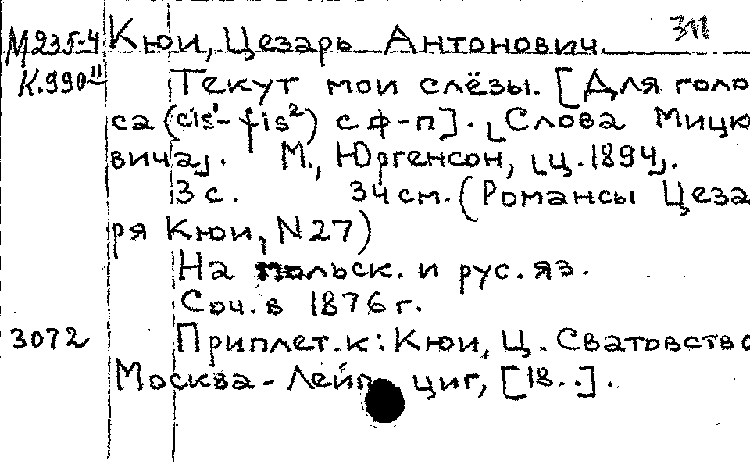 М235-4 Кюи, Цезарь Антонович 311
К.990 II Текут мои слёзы. [Для голо
са (cis¹-fis²) с ф-п]. [Слова Мицке
вича]. М., Юргенсон, [ц. 1894].
3 с. 34 см. (Романсы Цеза
ря Кюи, N27)
На польск. и рус. яз.
Соч. в 1876 г.
3072 Приплет. к: Кюи, Ц. Сватовство
Москва - Лейпциг, [18..].